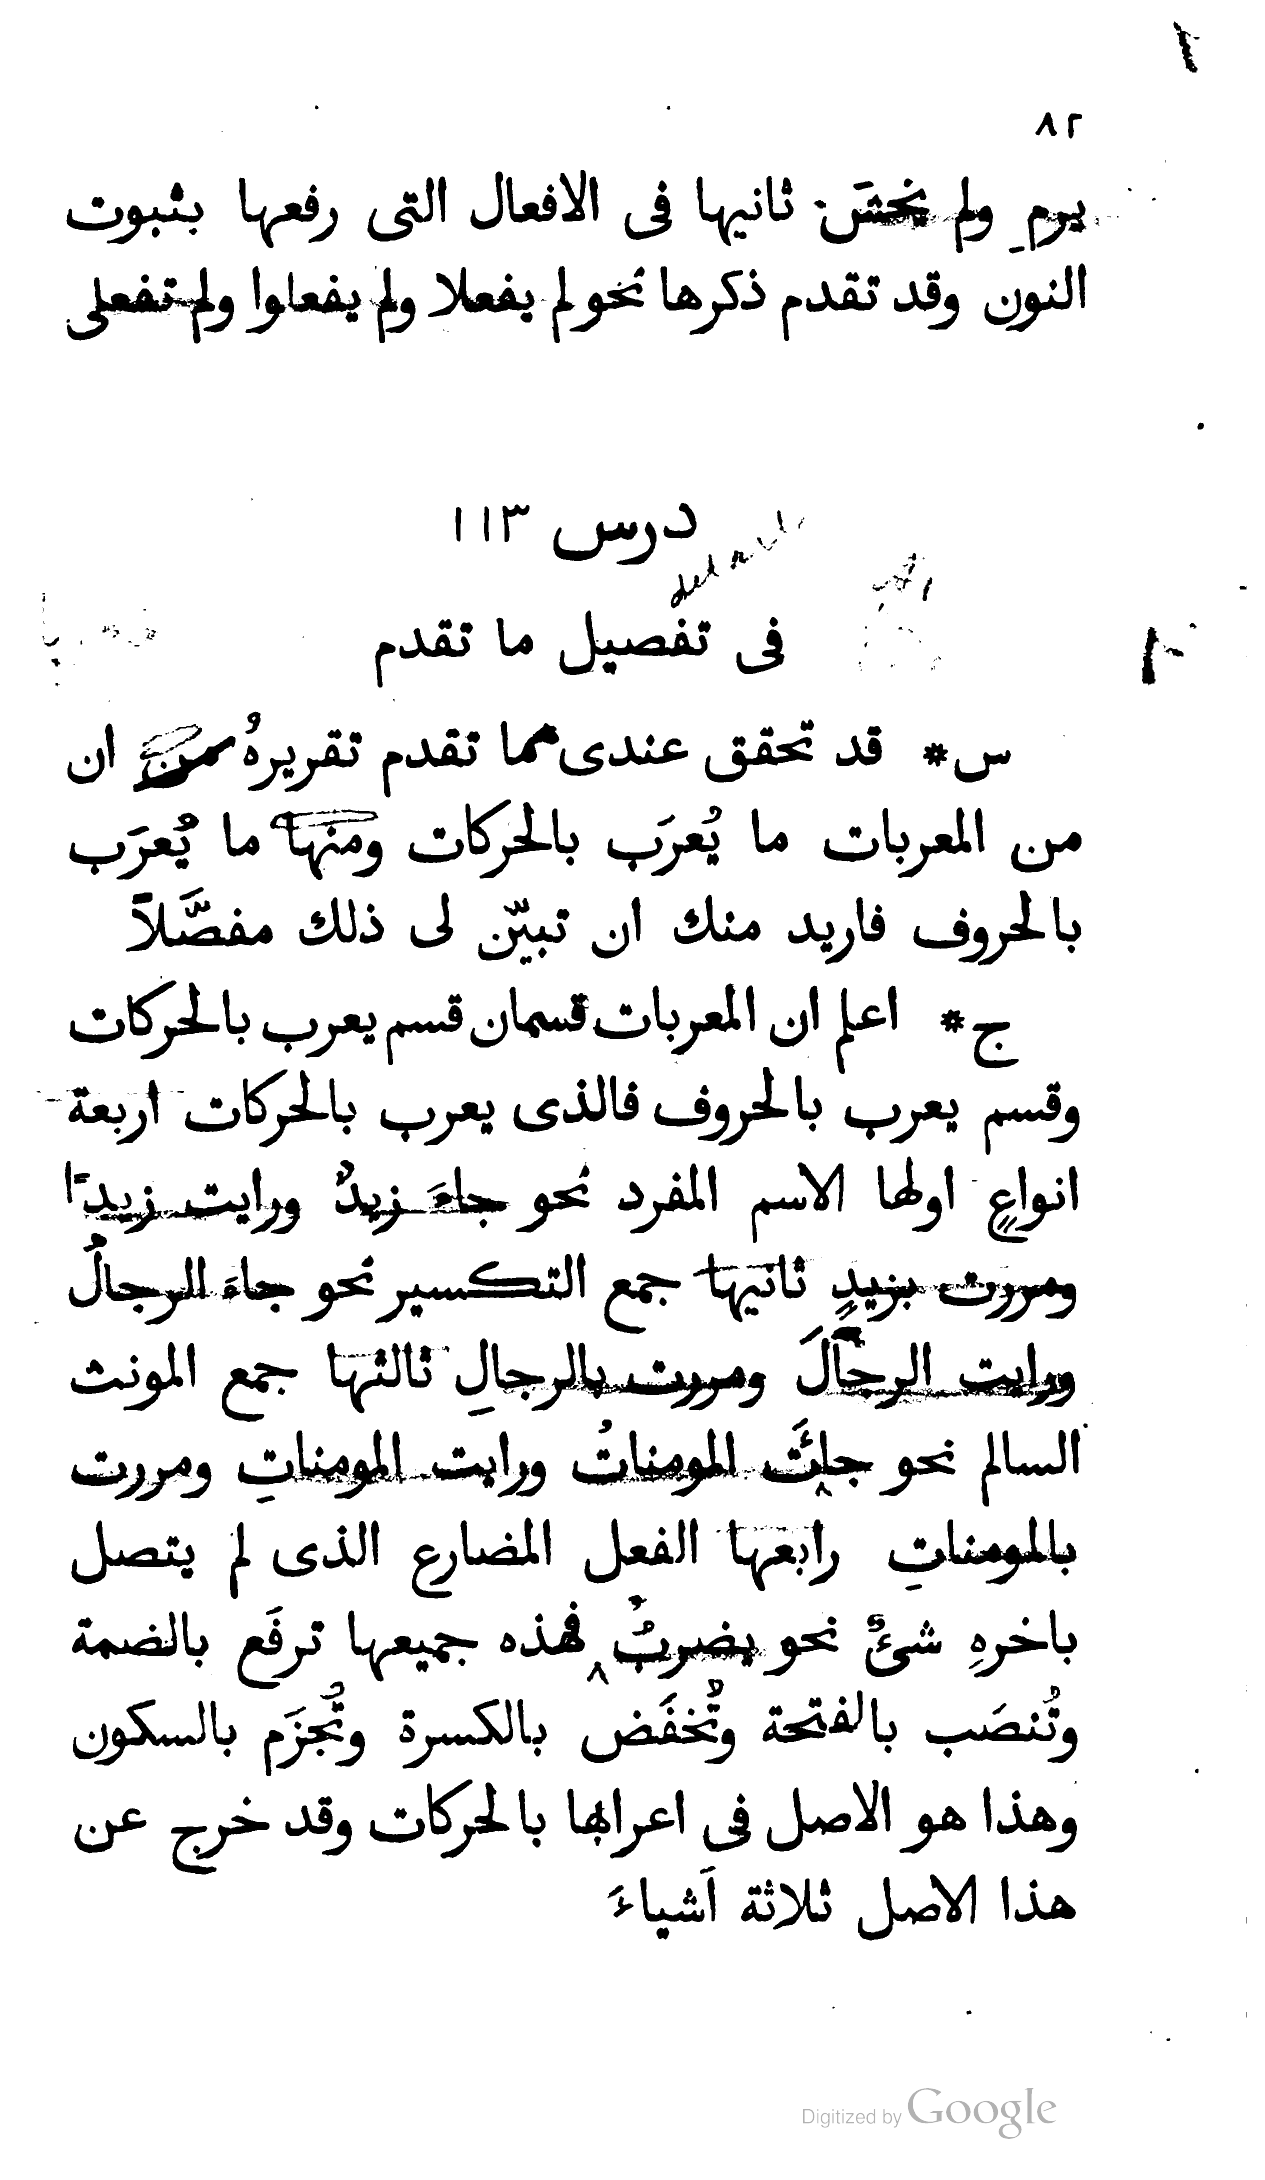 ٨٢
يرمِ ولم يخشَ ثانيها فى الافعال التى رفعها بثبوت
النون وقد تقدم ذكرها نحو لم يفعلا ولم يفعلوا ولم تفعلى
درس ١١٣
فى تفصيل ما تقدم
س * قد تحقق عندى مما تقدم تقريرهُ من ان
من المعربات ما يُعرَب بالحركات ومنها ما يُعرَب
بالحروف فاريد منك ان تبيّن لى ذلك مفصَّلاً
ج * اعلم ان المعربات قسمان قسم يعرب بالحركات
وقسم يعرب بالحروف فالذى يعرب بالحركات اربعة
انواعٍ اولها الاسم المفرد نحو جاءَ زيدٌ ورايت زيدًا
ومررت بزيدٍ ثانيها جمع التكسير نحو جاءَ الرجالُ
ورايت الرجالَ ومررت بالرجالِ ثالثها جمع المونث
السالم نحو جائَت المومناتُ ورايت المومناتِ ومررت
بالمومناتِ رابعها الفعل المضارع الذى لم يتصل
باخرهِ شئٌ نحو يضربُ فهذه جميعها ترفَع بالضمة
وتُنصَب بالفتحة وتُخفَض بالكسرة وتُجزَم بالسكون
وهذا هو الاصل فى اعرابها بالحركات وقد خرج عن
هذا الاصل ثلاثة اَشياءَ
Digitized by Google